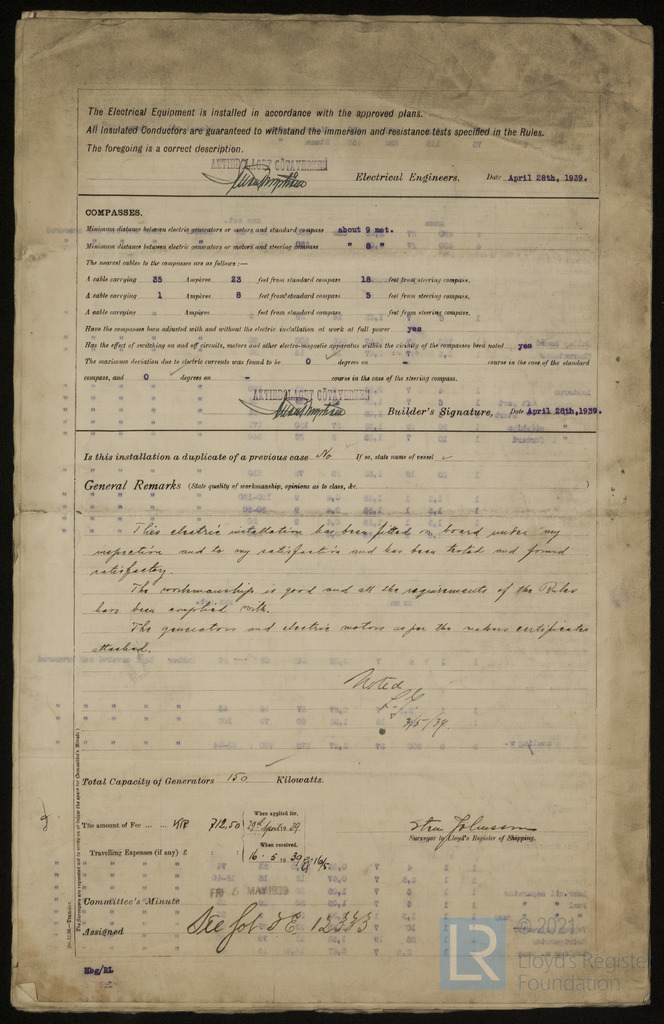 The Electrical Equipment is installed in accordance with the approved plans.
All Insulated Conductors are guaranteed to withstand the immersion and resistance tests specified in the Rules.
The foregoing is a correct description.
AKTIEBOLAGET GÖTAVERKEN
Electrical Engineers. Date April 28th, 1939.
COMPASSES.
Minimum distance between electric generators or motors and standard compass about 9 met.
Minimum distance between electric generators or motors and steering compass " 8 "
The nearest cables to the compasses are as follows:—
A cable carrying 35 Ampères 23 feet from standard compass 18 feet from steering compass.
A cable carrying 1 Ampères 8 feet from standard compass 5 feet from steering compass.
A cable carrying - Ampères feet from standard compass feet from steering compass.
Have the compasses been adjusted with and without the electric installation at work at full power yes
Has the effect of switching on and off circuits, motors and other electro-magnetic apparatus within the vicinity of the compasses been noted yes
The maximum deviation due to electric currents was found to be 0 degrees on - course in the case of the standard
compass, and 0 degrees on - course in the case of the steering compass.
AKTIEBOLAGET GÖTAVERKEN
Builder's Signature, Date April 28th, 1939.
Is this installation a duplicate of a previous case No If so, state name of vessel
General Remarks (State quality of workmanship, opinions as to class, &c. )
This electric installation has been fitted on board under my
inspection and to my satisfaction and has been tested and found
satisfactory.
The workmanship is good and all the requirements of the Rules
have been complied with.
The generators and electric motors as per the makers certificates
attached.
Noted
3/5/39.
Total Capacity of Generators 150 Kilowatts.
The amount of Fee ... ... KR 712,50
When applied for,
29th April 19 39
When received,
Travelling Expenses (if any) £ : :
16 . 5 . 19 39 16/5
Surveyor to Lloyd's Register of Shipping.
FRI 5 MAY 1939
Committee's Minute
Assigned See Got FE 12383
Hbg/RL
The Surveyors are requested not to write on or below the space for Committee's Minute.
© 2021
LR Lloyd's Register
Foundation